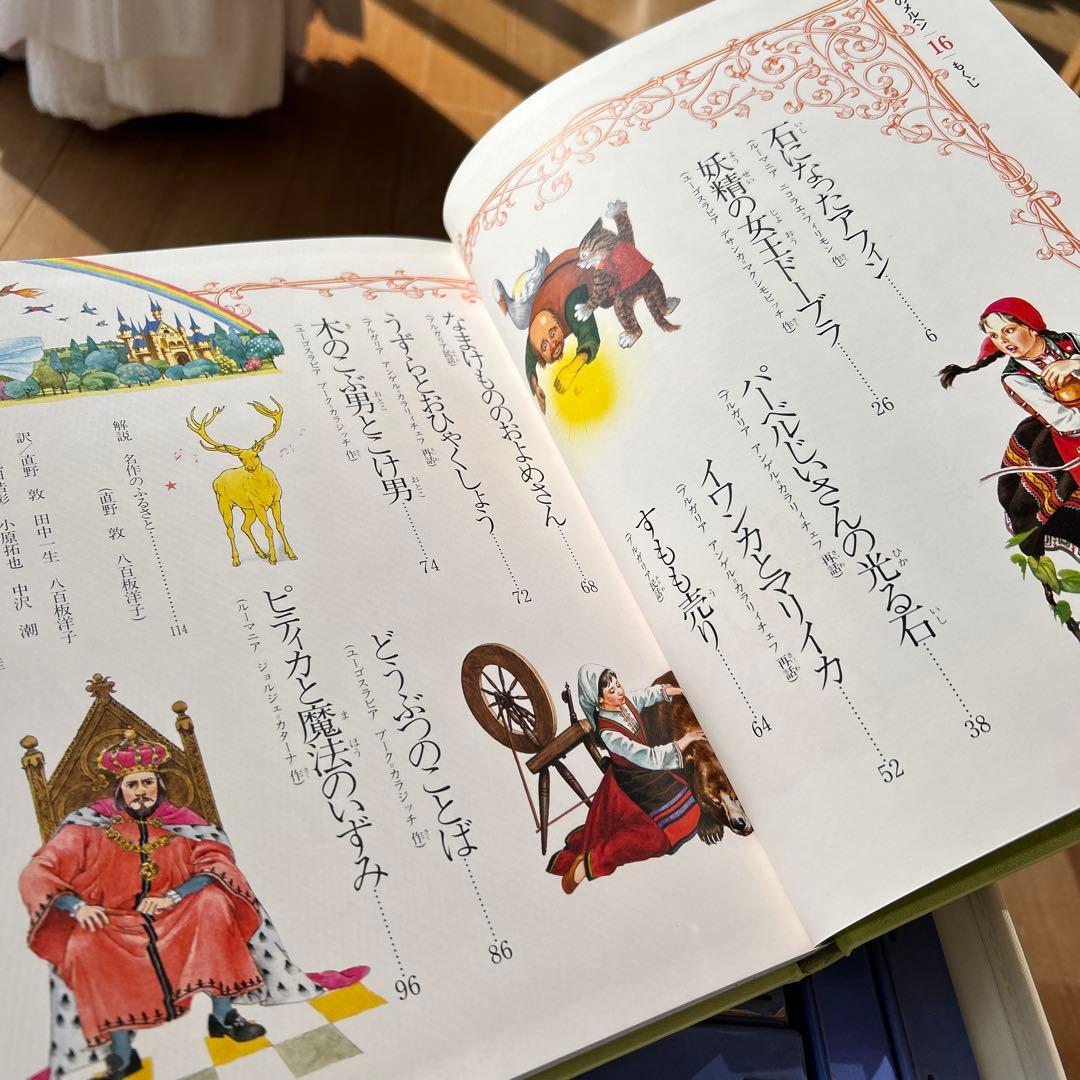 のメルヘン 16 もくじ
石になったアフィン……6
(ルーマニア ニコラエ=フィリモン 作)
妖精の女王ドーブラ……26
(ユーゴスラビア デサンカ=マクシモビッチ 作)
パーベルじいさんの光る石……38
(ブルガリア アンゲル=カラリイチェフ 再話)
イワンカとマリイカ……52
(ブルガリア アンゲル=カラリイチェフ 再話)
すもも売り……64
(ブルガリア民話)
なまけもののおよめさん……68
(ブルガリア民話)
うずらとおひゃくしょう……72
(ブルガリア アンゲル=カラリイチェフ 再話)
木のこぶ男とこけ男……74
(ユーゴスラビア ブーク=カラジッチ 作)
どうぶつのことば……86
(ユーゴスラビア ブーク=カラジッチ 作)
ピティカと魔法のいずみ……96
(ルーマニア ジョルジェ=カターナ 作)
解説 名作のふるさと……114
(直野 敦 八百板洋子)
訳/直野 敦 田中一生 八百板洋子
小原拓也 中沢 潮